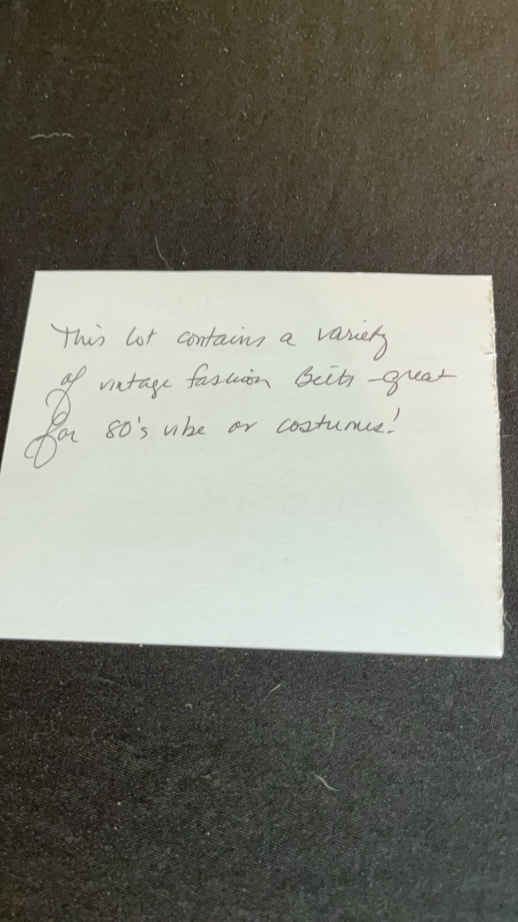 This lot contains a variety
of vintage fashion Belts - great
for 80's vibe or costumes!